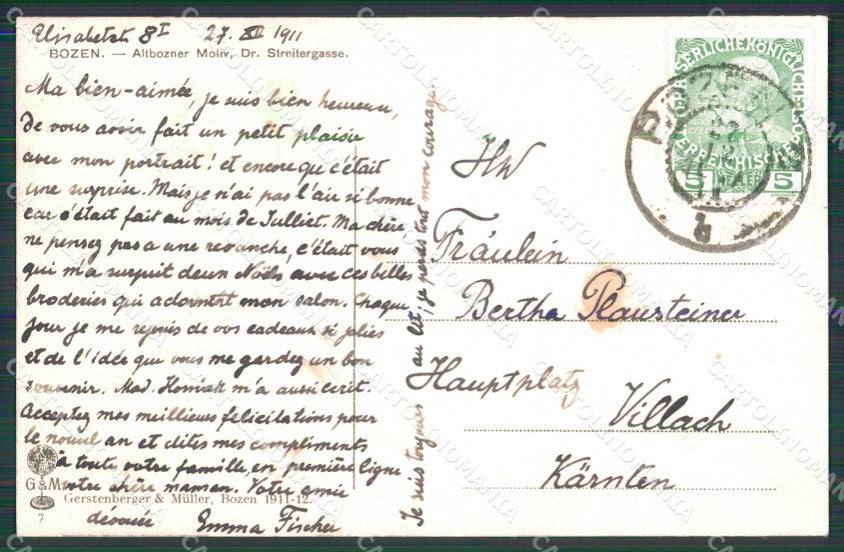 Elisabetstr 8 I 27. XII 1911
BOZEN. — Altbozner Motiv, Dr. Streitergasse.
Ma bien-aimée, je suis bien heureuse,
de vous avoir fait un petit plaisir
avec mon portrait! et encore que c'était
une surprise. Mais je n'ai pas l'air si bonne
car c'était fait au mois de Julliet. Ma chère,
ne pensez pas a une revanche, c'était vous
qui m'a surprit deux Noëls avec ces belles
broderies qui adornent mon salon. Chaque
jour je me rejouis de vos cadeaux si jolies
et de l'idée que vous me gardez un bon
souvenir. Mad. m'a aussi ecrit.
Acceptez mes meillieures felicitations pour
le nouvel an et dites mes compliments
à toute votre famille, en première ligne
votre chère maman. Votre amie
dévouée Emma Fischer
Je suis toujours au lit, je perds tout mon courage.
G&M
Gerstenberger & Müller, Bozen 1911-12.
7
HW
Fräulein
Bertha Plausteiner
Hauptplatz
Villach
Kärnten
KAISERLICHE KÖNIGLICHE
ÖSTERREICHISCHE
5 HELLER 5
BOZEN
27
12
CARTOLINOMANIA